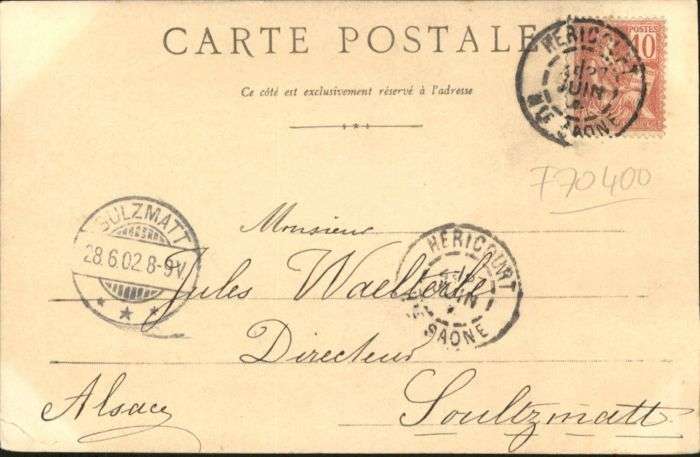 CARTE POSTALE
POSTES
10
Ce côté est exclusivement réservé à l'adresse
HÉRICOURT
27
JUIN
HTE SAONE
770400
SULZMATT
28.6.02.8-9V
Monsieur
HÉRICOURT
SAONE
Jules
Directeur
Alsace
Soultzmatt